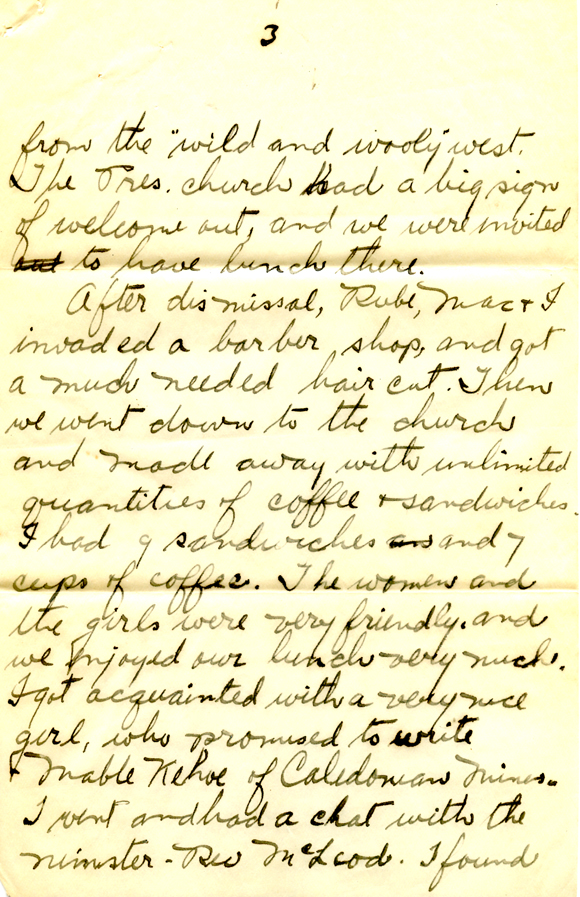 3
from the "wild and wooly" west.
The Pres. church had a big sign
of welcome out, and we were invited
out to have lunch there.
After dismissal, Rube, Mac & I
invaded a barber shop, and got
a much needed hair cut. Then
we went down to the church
and made away with unlimited
quantities of coffee & sandwiches.
I had 9 sandwiches an and 7
cups of coffee. The women and
the girls were very friendly. and
we enjoyed our lunch very much.
I got acquainted with a very nice
girl, who promised to write
- Mable Kehoe of Caledonian Mines.
I went and had a chat with the
minister - Rev McLeod. I found